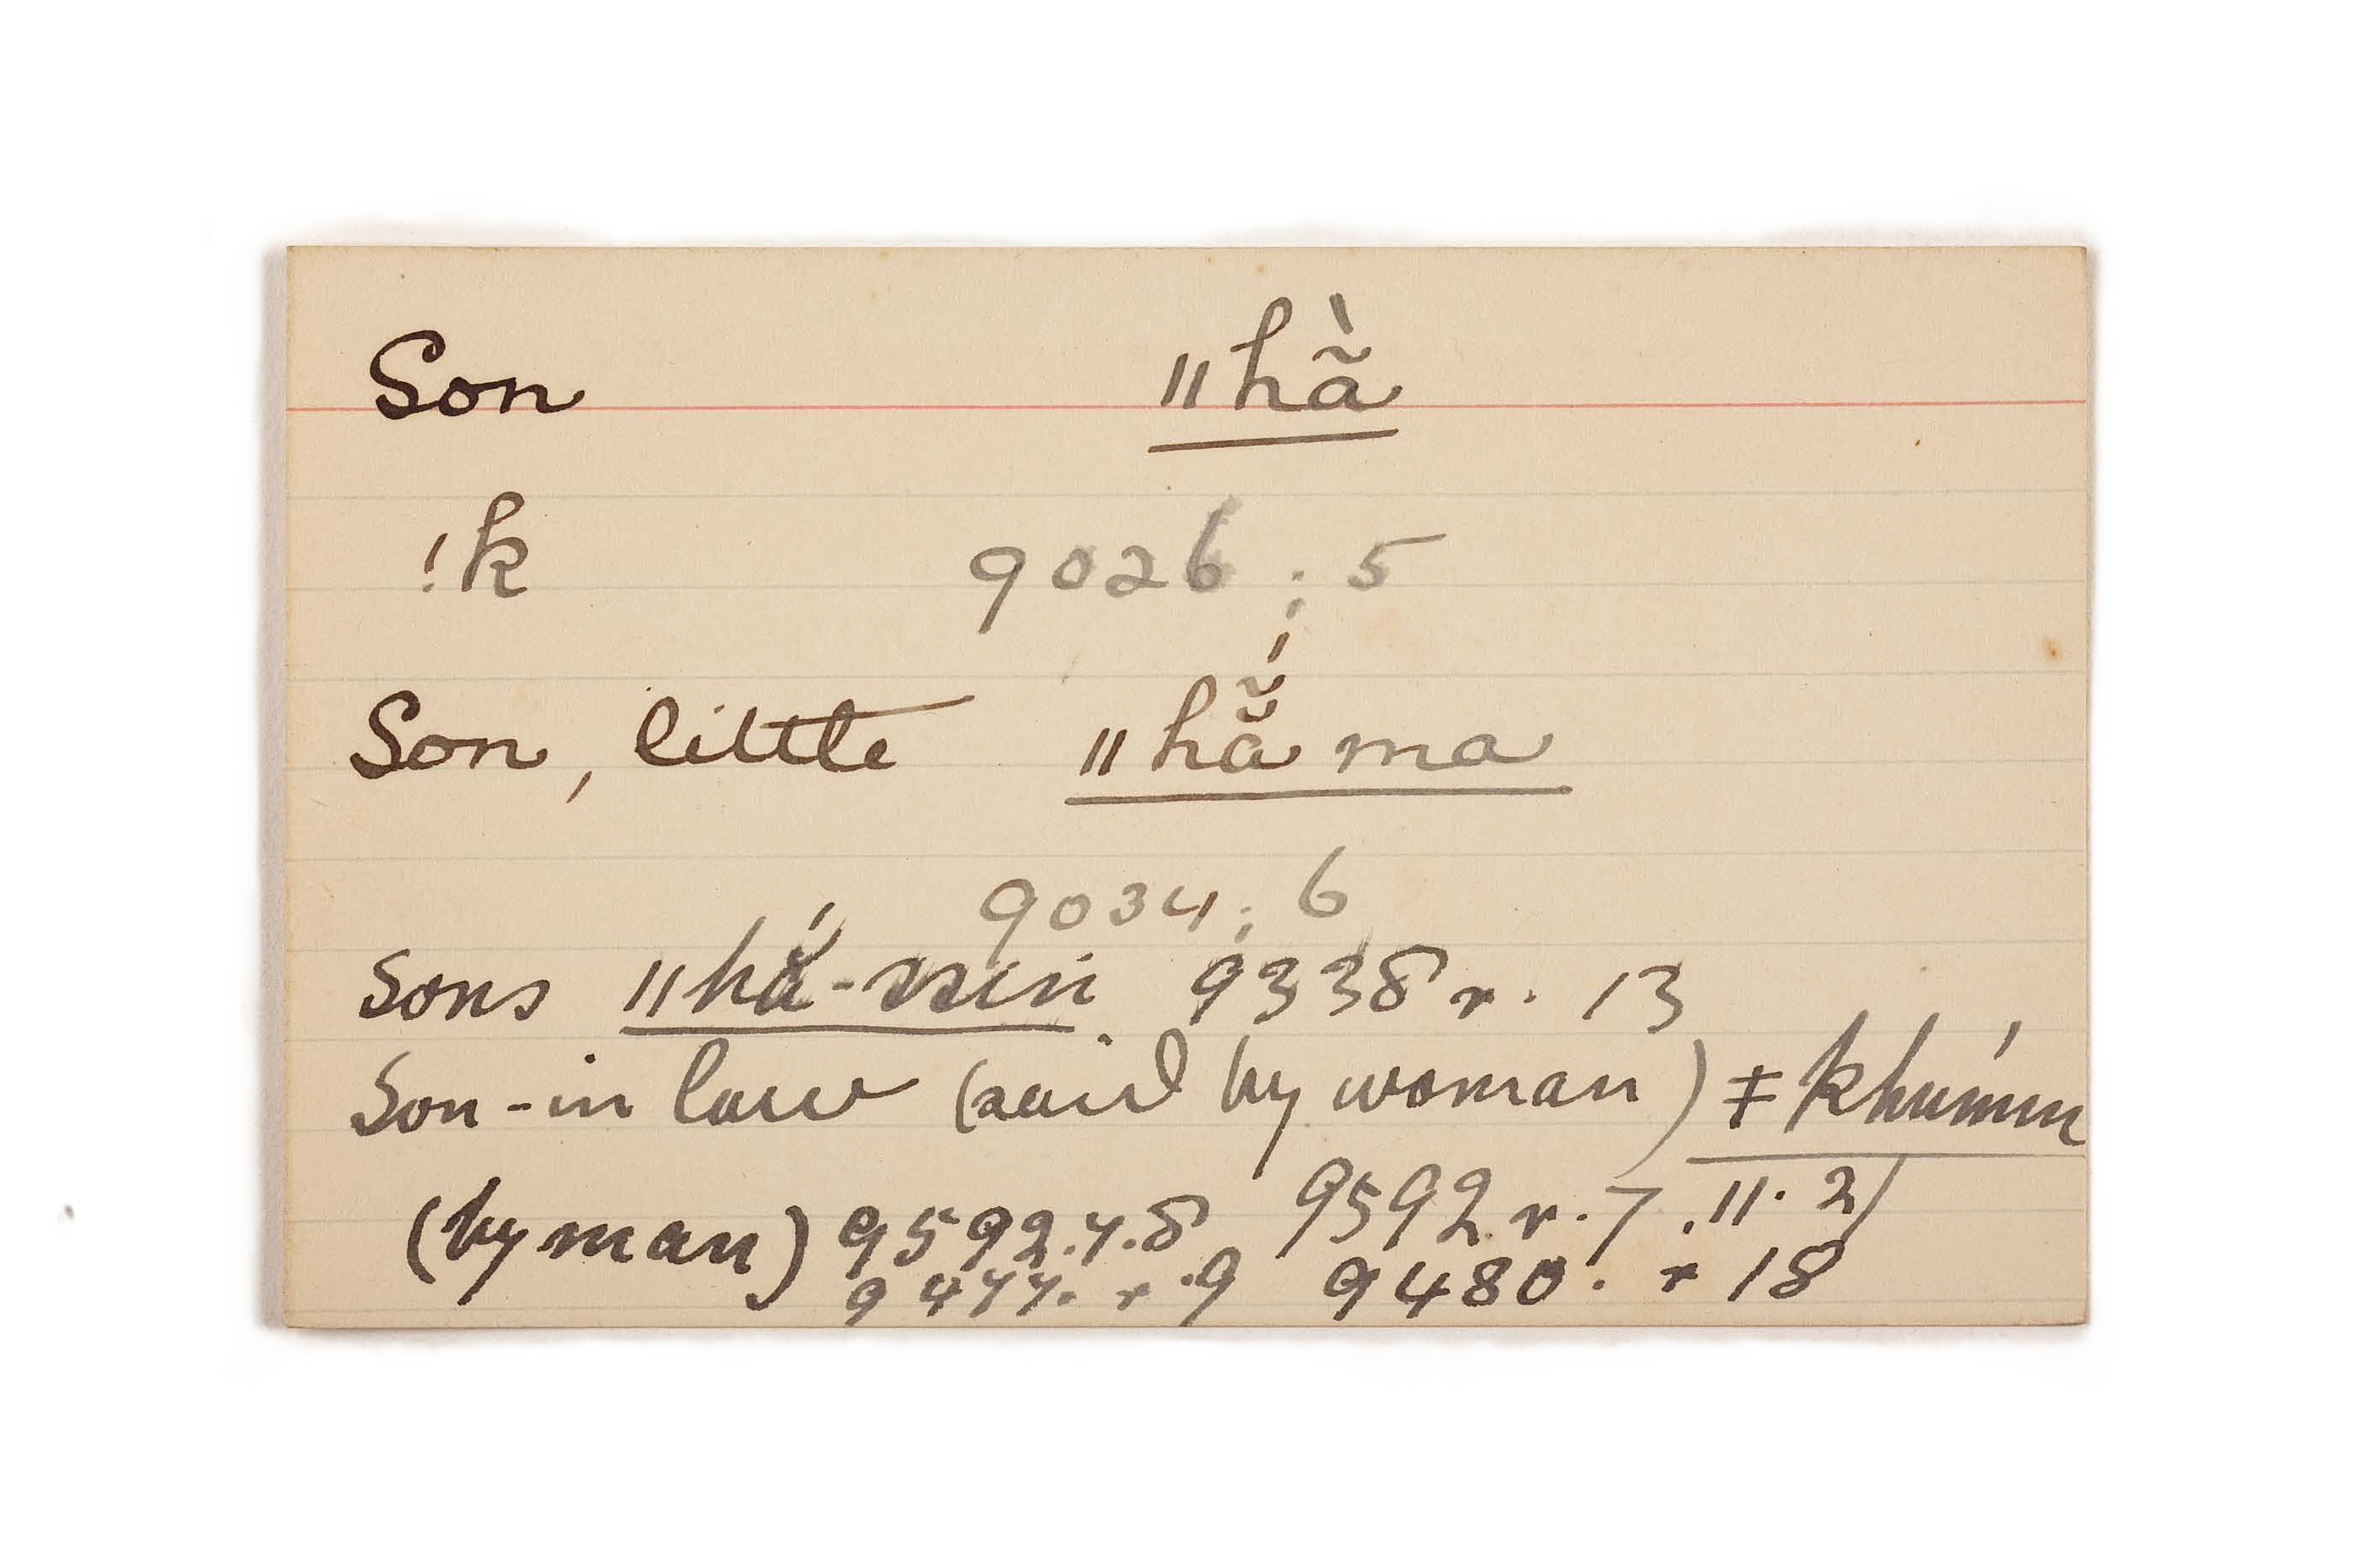 Son ǁhã̀
!k 9026 ; 5
Son, little ǁhã̆́ma
9034 ; 6
Sons ǁhắ-ssin 9338 r. 13
Son-in law (said by woman) ǂkhúmm
(by man) 9592.r.8 9592 r.7.11.21
9477. r.9 9480. r 18